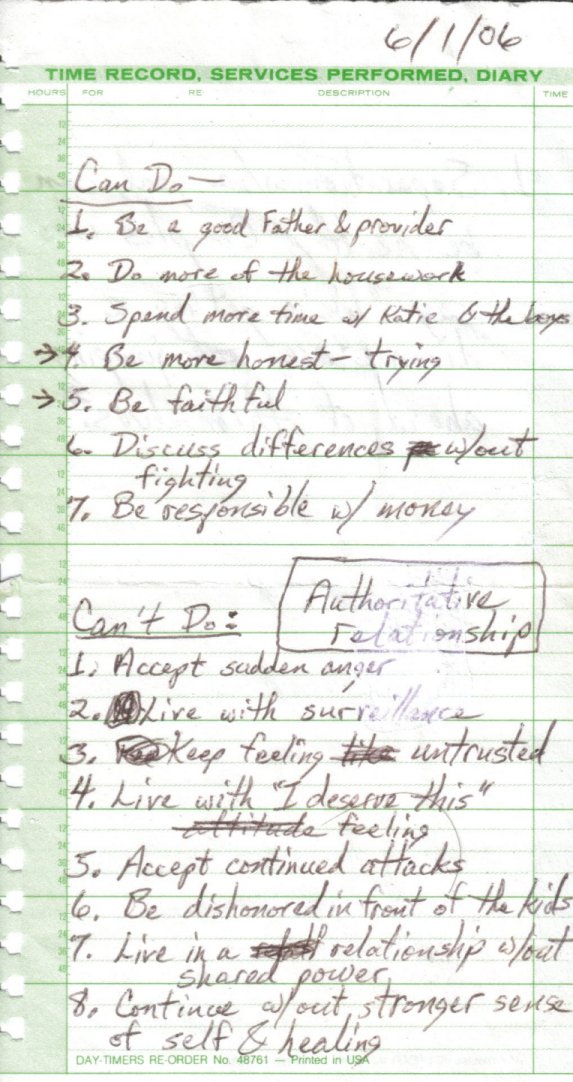 6/1/06
TIME RECORD, SERVICES PERFORMED, DIARY
HOURS FOR RE DESCRIPTION TIME
Can Do —
1. Be a good Father & provider
2. Do more of the housework
3. Spend more time w/ Katie & the boys
→ 4. Be more honest — trying
→ 5. Be faithful
6. Discuss differences w/out
fighting
7. Be responsible w/ money
Authoritative
relationship
Can't Do:
1. Accept sudden anger
2. Live with surveillance
3. Keep feeling like untrusted
4. Live with "I deserve this"
attitude feeling
5. Accept continued attacks
6. Be dishonored in front of the kids
7. Live in a relationship w/out
shared power
8. Continue w/out stronger sense
of self & healing
DAY-TIMERS RE-ORDER No. 48761 — Printed in USA